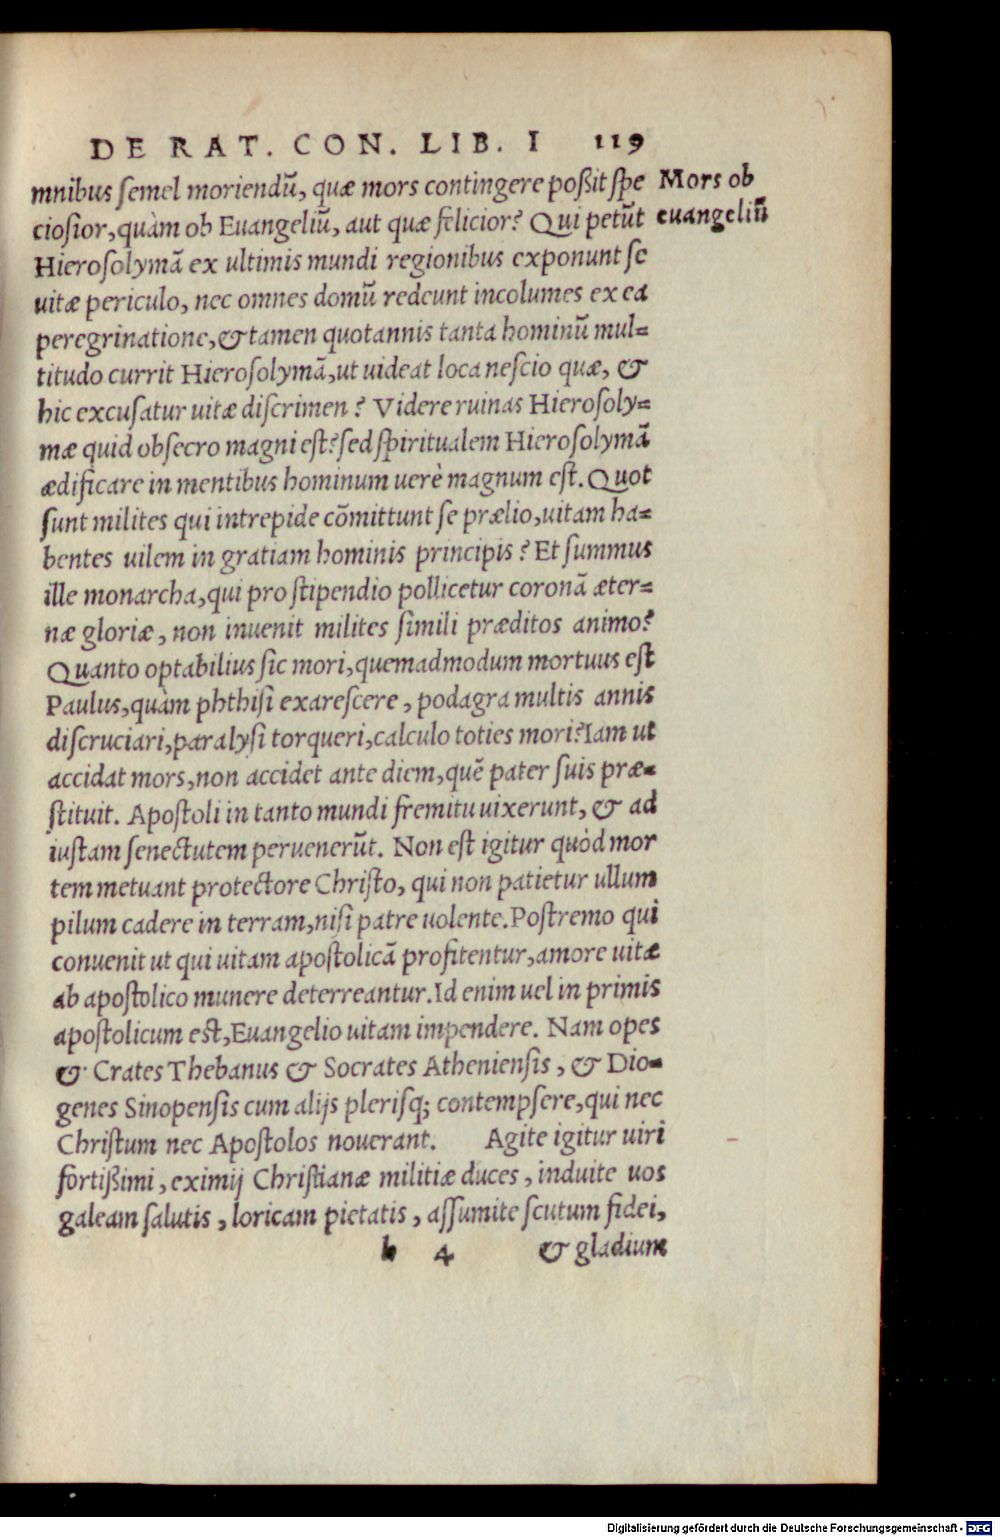 DE RAT. CON. LIB. I 119
mnibus semel moriendũ, quæ mors contingere poßit spe
Mors ob
ciosior, quàm ob Euangeliũ, aut quæ felicior? Qui petũt
euangeliũ
Hierosolymã ex ultimis mundi regionibus exponunt se
uitæ periculo, nec omnes domũ redeunt incolumes ex ea
peregrinatione, & tamen quotannis tanta hominũ mul=
titudo currit Hierosolymã, ut uideat loca nescio quæ, &
hic excusatur uitæ discrimen? Videre ruinas Hierosoly=
mæ quid obsecro magni est? sed spiritualem Hierosolymã
ædificare in mentibus hominum uerè magnum est. Quot
sunt milites qui intrepide cõmittunt se prælio, uitam ha=
bentes uilem in gratiam hominis principis? Et summus
ille monarcha, qui pro stipendio pollicetur coronã æter=
næ gloriæ, non inuenit milites simili præditos animo?
Quanto optabilius sic mori, quemadmodum mortuus est
Paulus, quàm phthisi exarescere, podagra multis annis
discruciari, paralysi torqueri, calculo toties mori? Iam ut
accidat mors, non accidet ante diem, quẽ pater suis præ=
stituit. Apostoli in tanto mundi fremitu uixerunt, & ad
iustam senectutem peruenerũt. Non est igitur quòd mor
tem metuant protectore Christo, qui non patietur ullum
pilum cadere in terram, nisi patre uolente. Postremo qui
conuenit ut qui uitam apostolicã profitentur, amore uitæ
ab apostolico munere deterreantur. Id enim uel in primis
apostolicum est, Euangelio uitam impendere. Nam opes
& Crates Thebanus & Socrates Atheniensis, & Dio=
genes Sinopensis cum alijs plerisq; contempsere, qui nec
Christum nec Apostolos nouerant. Agite igitur uiri
fortißimi, eximij Christianæ militiæ duces, induite uos
galeam salutis, loricam pietatis, assumite scutum fidei,
b 4 & gladium
Digitalisierung gefördert durch die Deutsche Forschungsgemeinschaft - DFG